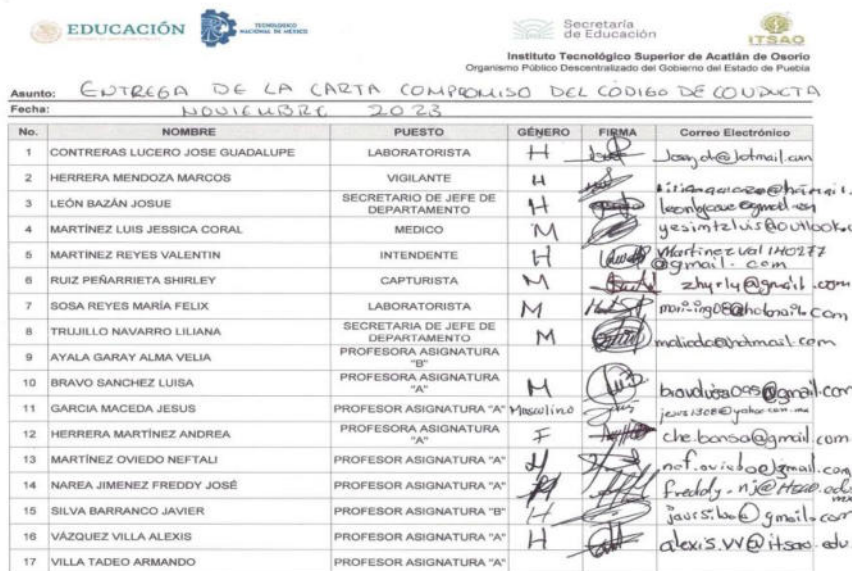 EDUCACIÓN
TECNOLÓGICO
NACIONAL DE MÉXICO
Secretaría
de Educación
ITSAO
Instituto Tecnológico Superior de Acatlán de Osorio
Organismo Público Descentralizado del Gobierno del Estado de Puebla
Asunto: ENTREGA DE LA CARTA COMPROMISO DEL CÓDIGO DE CONDUCTA
Fecha: NOVIEMBRE 2023
No. NOMBRE PUESTO GÉNERO FIRMA Correo Electrónico
1 CONTRERAS LUCERO JOSE GUADALUPE LABORATORISTA H
2 HERRERA MENDOZA MARCOS VIGILANTE H
3 LEÓN BAZÁN JOSUE SECRETARIO DE JEFE DE DEPARTAMENTO H
4 MARTÍNEZ LUIS JESSICA CORAL MEDICO M
5 MARTÍNEZ REYES VALENTIN INTENDENTE H
6 RUIZ PEÑARRIETA SHIRLEY CAPTURISTA M zhyrly@gmail.com
7 SOSA REYES MARÍA FELIX LABORATORISTA M
8 TRUJILLO NAVARRO LILIANA SECRETARIA DE JEFE DE DEPARTAMENTO M
9 AYALA GARAY ALMA VELIA PROFESORA ASIGNATURA "B"
10 BRAVO SANCHEZ LUISA PROFESORA ASIGNATURA "A" M
11 GARCIA MACEDA JESUS PROFESOR ASIGNATURA "A" Masculino
12 HERRERA MARTÍNEZ ANDREA PROFESORA ASIGNATURA "A" F che.bonsa@gmail.com
13 MARTÍNEZ OVIEDO NEFTALI PROFESOR ASIGNATURA "A" nef.oviedo@gmail.com
14 NAREA JIMENEZ FREDDY JOSÉ PROFESOR ASIGNATURA "A" H
15 SILVA BARRANCO JAVIER PROFESOR ASIGNATURA "B" H
16 VÁZQUEZ VILLA ALEXIS PROFESOR ASIGNATURA "A" H alexis.vv@itsao.edu.
17 VILLA TADEO ARMANDO PROFESOR ASIGNATURA "A"